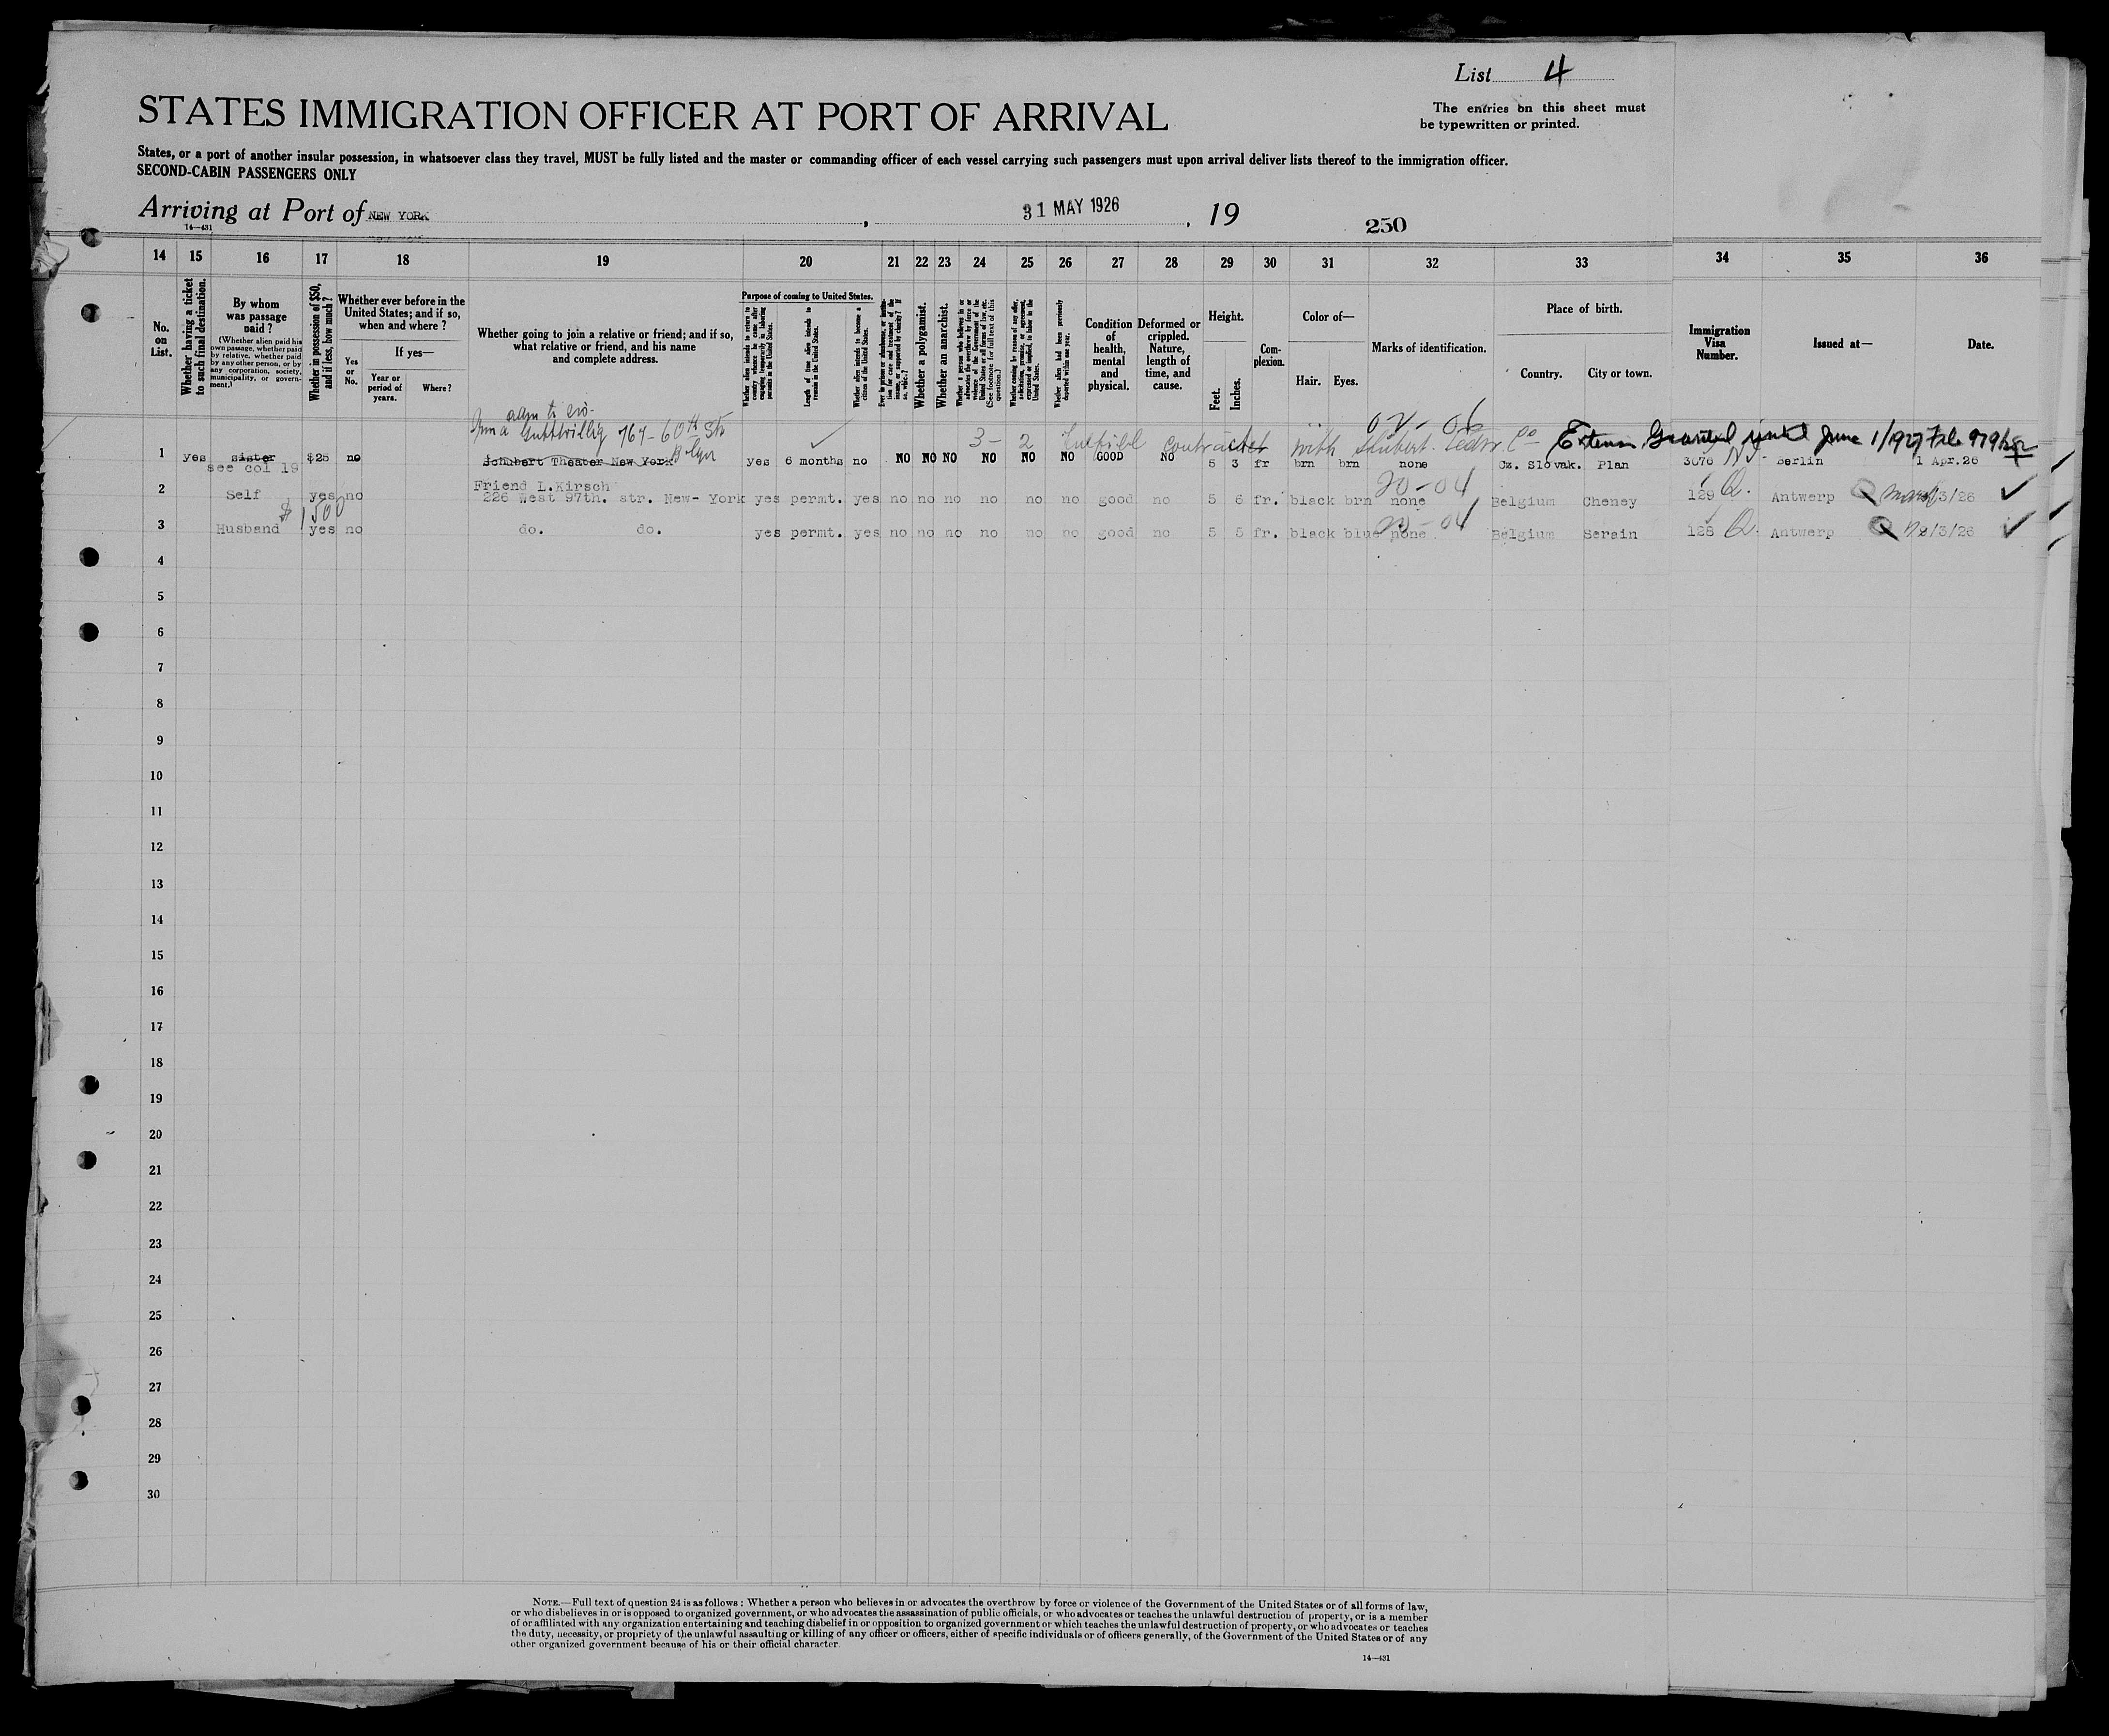 List 4
STATES IMMIGRATION OFFICER AT PORT OF ARRIVAL
The entries on this sheet must
be typewritten or printed.
States, or a port of another insular possession, in whatsoever class they travel, MUST be fully listed and the master or commanding officer of each vessel carrying such passengers must upon arrival deliver lists thereof to the immigration officer.
SECOND-CABIN PASSENGERS ONLY
Arriving at Port of NEW YORK, 31 MAY 1926, 19
14—431
250
14 15 16 17 18 19 20 21 22 23 24 25 26 27 28 29 30 31 32 33 34 35 36
No. on List.
Whether having a ticket to such final destination.
By whom was passage paid?
(Whether alien paid his own passage, whether paid by relative, whether paid by any other person, or by any corporation, society, municipality, or government.)
Whether in possession of $50, and if less, how much?
Whether ever before in the United States; and if so, when and where?
Yes or No.
If yes—
Year or period of years.
Where?
Whether going to join a relative or friend; and if so, what relative or friend, and his name and complete address.
Purpose of coming to United States.
Whether alien intends to return to country whence he came after engaging temporarily in laboring pursuits in the United States.
Length of time alien intends to remain in the United States.
Whether alien intends to become a citizen of the United States.
Ever in prison or almshouse, or institution for care and treatment of the insane, or supported by charity? If so, which?
Whether a polygamist.
Whether an anarchist.
Whether a person who believes in or advocates the overthrow by force or violence of the Government of the United States or all forms of law, etc. (See footnote for full text of this question.)
Whether coming by reason of any offer, solicitation, promise, or agreement, expressed or implied, to labor in the United States.
Whether alien had been previously deported within one year.
Condition of health, mental and physical.
Deformed or crippled. Nature, length of time, and cause.
Height.
Feet. Inches.
Complexion.
Color of—
Hair. Eyes.
Marks of identification.
Place of birth.
Country. City or town.
Immigration Visa Number.
Issued at—
Date.
adm to
767-60th Str
3-2 contract with Shubert
Extension Granted until June 1/1927 File 979/
1 yes sister $25 no Schubert Theater New York yes 6 months no NO NO NO NO NO NO GOOD NO 5 3 fr brn brn none Cz. Slovak. Plan 3076 Berlin 1 Apr.26
see col 19
Friend L.Kirsch
20-04
2 Self yes no 226 West 97th. str. New-York yes permt. yes no no no no no no good no 5 6 fr. black brn none Belgium Cheney 129 Q. Antwerp 3/26
$1500
20-04
3 Husband yes no do. do. yes permt. yes no no no no no no good no 5 5 fr. black blue none Belgium Serain 128 Q. Antwerp /3/26
4
5
6
7
8
9
10
11
12
13
14
15
16
17
18
19
20
21
22
23
24
25
26
27
28
29
30
NOTE.—Full text of question 24 is as follows: Whether a person who believes in or advocates the overthrow by force or violence of the Government of the United States or of all forms of law,
or who disbelieves in or is opposed to organized government, or who advocates the assassination of public officials, or who advocates or teaches the unlawful destruction of property, or is a member
of or affiliated with any organization entertaining and teaching disbelief in or opposition to organized government or which teaches the unlawful destruction of property, or who advocates or teaches
the duty, necessity, or propriety of the unlawful assaulting or killing of any officer or officers, either of specific individuals or of officers generally, of the Government of the United States or of any
other organized government because of his or their official character.
14—431